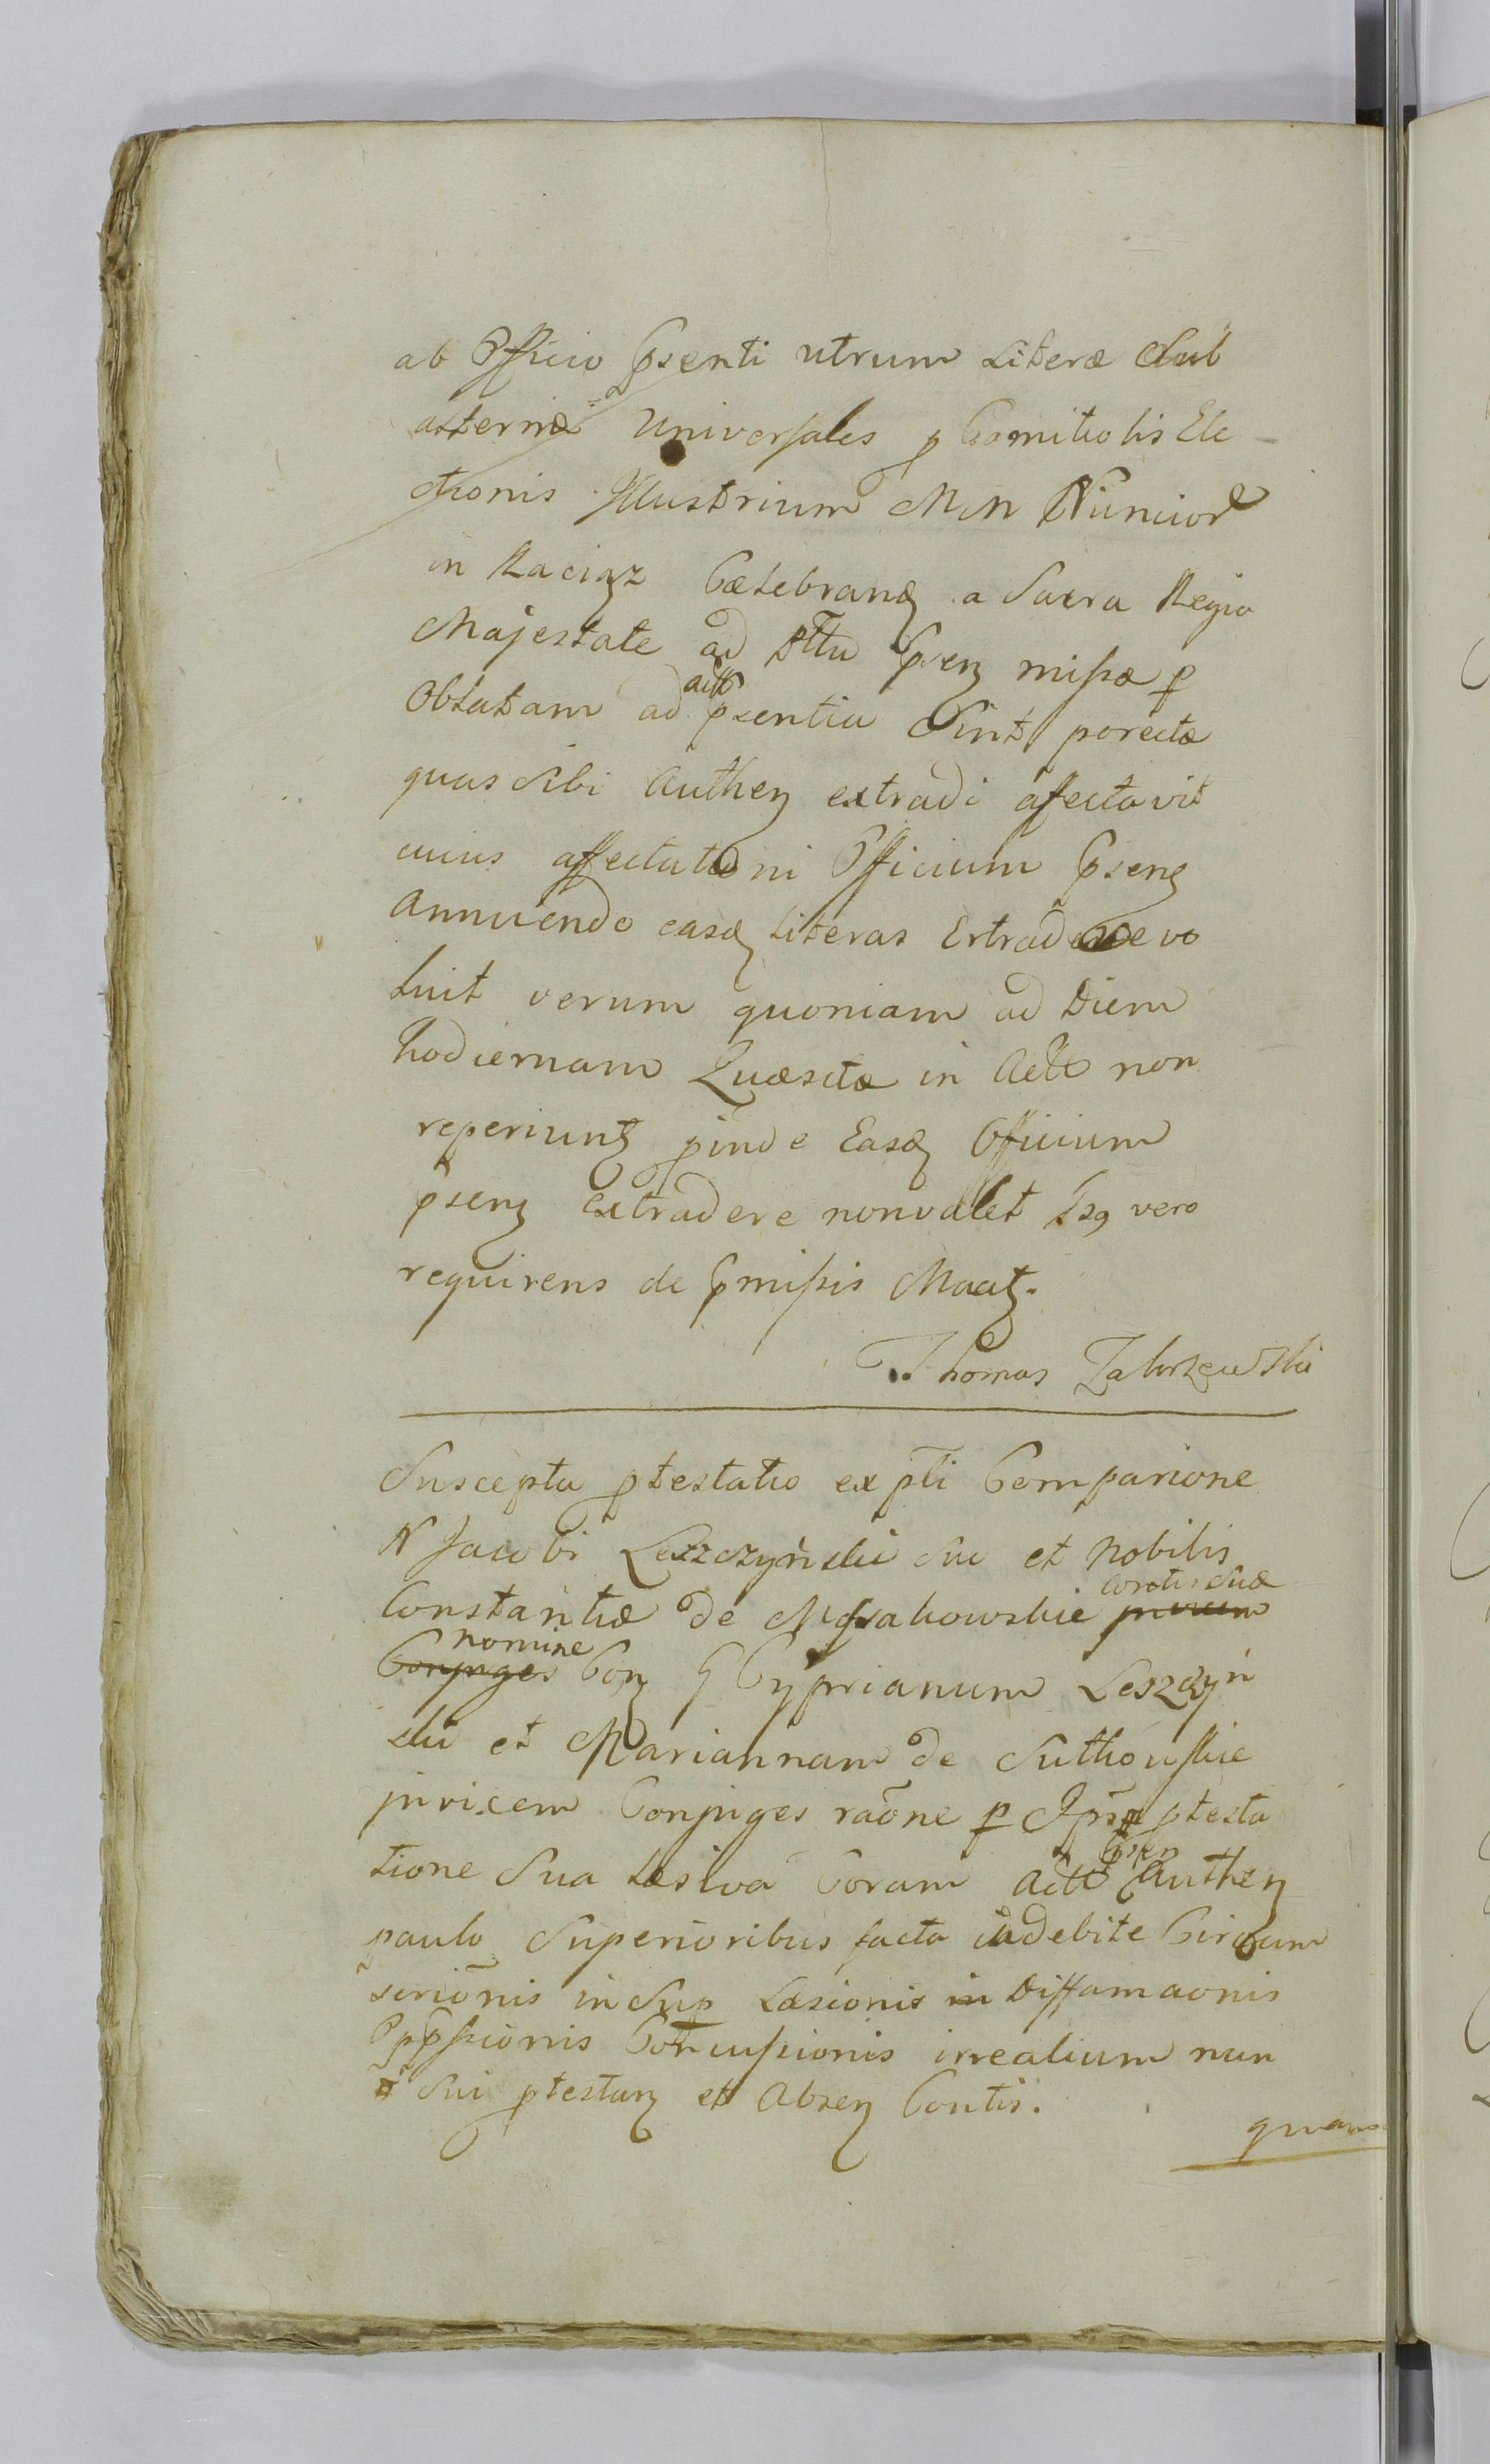 ab Officio Psenti utrum Literæ Sub
alternæ Universales p Comitiolis Ele-
ctionis Illustrium MM Nuncior
in Raciąz Cælebrand a Sacra Regia
Majestate ad Psen missæ p
Oblatam ad actt psentia Sint porectæ
quas Sibi Authen extradi afectavit
cuius affectationi Officium Psens
Annuendo easd Literas Extradere vo
luit verum quoniam ad Diem
hodiernam Quæsitæ in Actt non
reperiunt pinde Easd Officium
psens extradere nonvalet Isq vero
requirens de Pmissis Maat.
Thomas Zaborzewski
Suscepta ptestatio ex pti Comparione
N Jacobi Leszczyński Suo et Nobilis
Constantiæ de Mrahowskie invicem contis Suæ
Conjuges nomine Con G Cyprianum Leszczyń
ski et Mariannam de Suthowskie
invicem Conjuges raone p Ipsos ptesta
tione Sua Læsiva Coram Actt Psen Authen
paulo Superioribus facta indebite Circum
scrionis in Sup Læsionis in Diffamaonis
Oppssionis Concussionis irrealium nun
Sui ptestan et Absen Contis.
quam